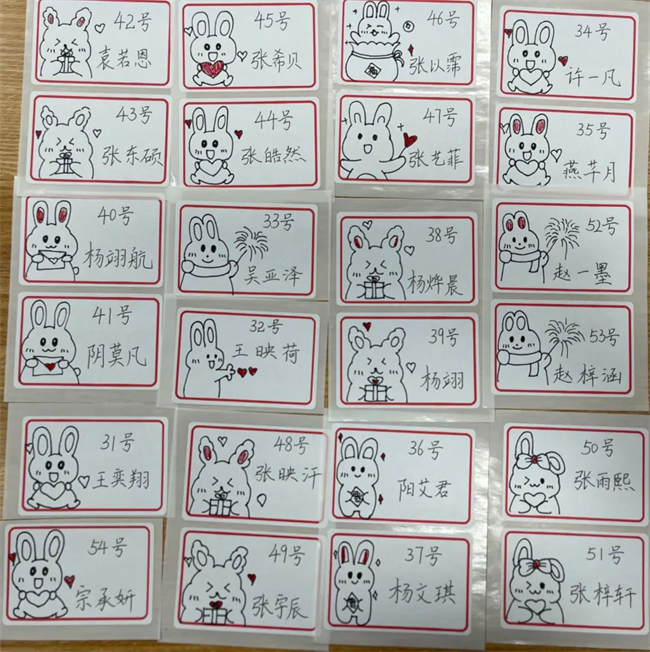 42号
袁若恩
45号
张希贝
46号
张以霈
34号
许一凡
43号
张东硕
44号
张皓然
47号
张艺菲
35号
燕芈月
40号
杨翊航
33号
吴亚泽
38号
杨烨晨
52号
赵一墨
41号
阴莫凡
32号
王映荷
39号
杨翊
53号
赵梓涵
31号
王奕翔
48号
张映汗
36号
阳艾君
50号
张雨熙
54号
宗承妍
49号
张宇辰
37号
杨文琪
51号
张梓轩